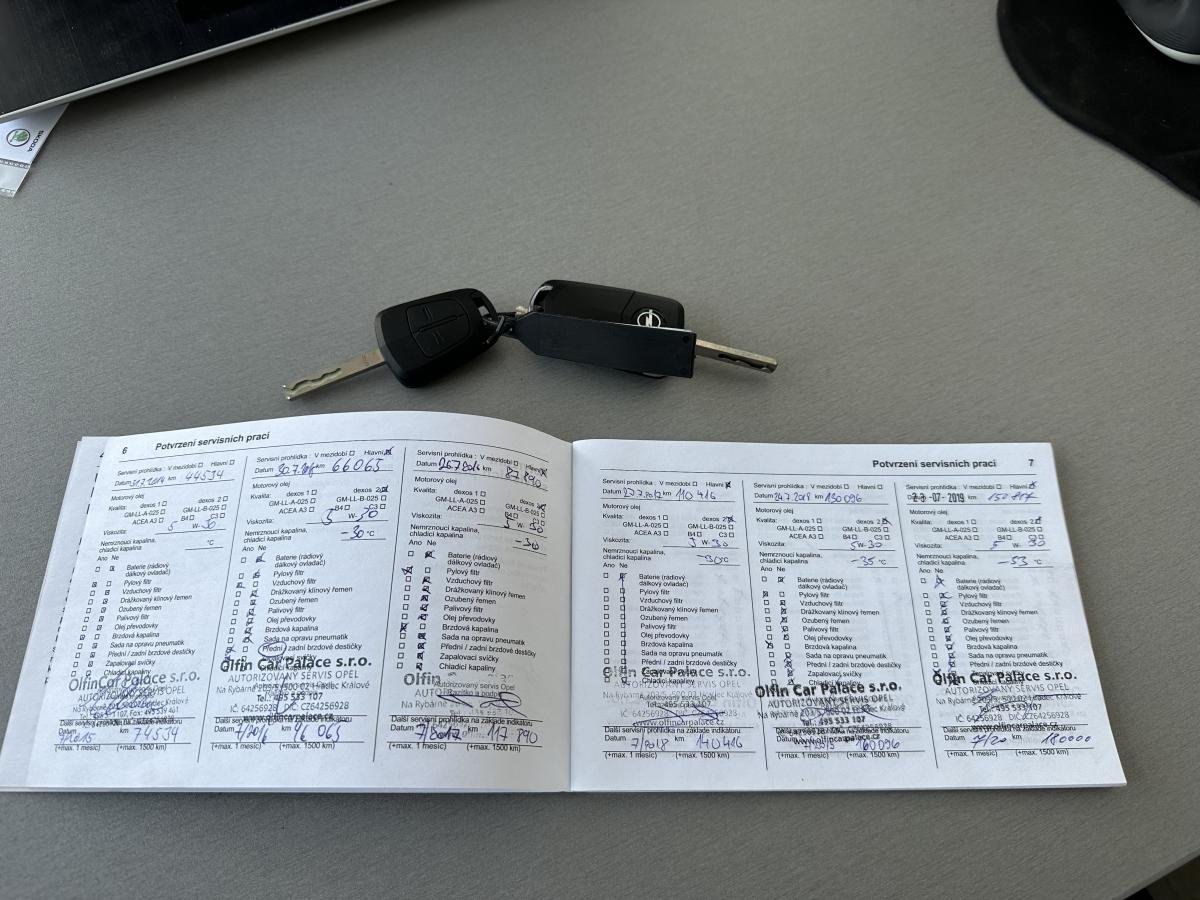 SKODA
6 Potvrzení servisních prací
Servisní prohlídka : V mezidobí Hlavní
Datum km 44534
Motorový olej
Kvalita: dexos 1 dexos 2
GM-LL-A-025 GM-LL-B-025
ACEA A3 B4 C3
Viskozita: 5 W-30
Nemrznoucí kapalina,
chladicí kapalina °C
Ano Ne
Baterie (rádiový
dálkový ovladač)
Pylový filtr
Vzduchový filtr
Drážkovaný klínový řemen
Ozubený řemen
Palivový filtr
Olej převodovky
Brzdová kapalina
Sada na opravu pneumatik
Přední / zadní brzdové destičky
Zapalovací svíčky
Chladicí kapaliny
Olfin Car Palace s.r.o.
AUTORIZOVANÝ SERVIS OPEL
Další servisní prohlídka na základě indikátoru
Datum 7/2015 km 74534
(+max. 1 měsíc) (+max. 1500 km)
Servisní prohlídka : V mezidobí Hlavní
Datum km 66065
Motorový olej
Kvalita: dexos 1 dexos 2
GM-LL-A-025 GM-LL-B-025
ACEA A3 B4 C3
Viskozita: 5 W-30
Nemrznoucí kapalina,
chladicí kapalina -30 °C
Ano Ne
Baterie (rádiový
dálkový ovladač)
Pylový filtr
Vzduchový filtr
Drážkovaný klínový řemen
Ozubený řemen
Palivový filtr
Olej převodovky
Brzdová kapalina
Sada na opravu pneumatik
Přední / zadní brzdové destičky
Olfin Car Palace s.r.o.
AUTORIZOVANÝ SERVIS OPEL
Na Rybárně 500 02 Hradec Králové
Tel.: 495 533 107
IČ: 64256928 DIČ: CZ64256928
www.olfincarpalace.cz
Další servisní prohlídka na základě indikátoru
Datum 7/2016 km 96 065
(+max. 1 měsíc) (+max. 1500 km)
Servisní prohlídka : V mezidobí Hlavní
Datum 26.7.2016 km 87 890
Motorový olej
Kvalita: dexos 1 dexos 2
GM-LL-A-025 GM-LL-B-025
ACEA A3 B4 C3
Viskozita: 5 W-30
Nemrznoucí kapalina,
chladicí kapalina -30
Ano Ne
Baterie (rádiový
dálkový ovladač)
Pylový filtr
Vzduchový filtr
Drážkovaný klínový řemen
Ozubený řemen
Palivový filtr
Olej převodovky
Brzdová kapalina
Sada na opravu pneumatik
Přední / zadní brzdové destičky
Zapalovací svíčky
Chladicí kapaliny
Olfin
Autorizovaný servis Opel
Na Rybárně
Další servisní prohlídka na základě indikátoru
Datum 7/2017 km 117 890
(+max. 1 měsíc) (+max. 1500 km)
Potvrzení servisních prací 7
Servisní prohlídka : V mezidobí Hlavní
Datum km 110 416
Motorový olej
Kvalita: dexos 1 dexos 2
GM-LL-A-025 GM-LL-B-025
ACEA A3 B4 C3
Viskozita: 5 W-30
Nemrznoucí kapalina,
chladicí kapalina -30 °C
Ano Ne
Baterie (rádiový
dálkový ovladač)
Pylový filtr
Vzduchový filtr
Drážkovaný klínový řemen
Ozubený řemen
Palivový filtr
Olej převodovky
Brzdová kapalina
Sada na opravu pneumatik
Přední / zadní brzdové destičky
Zapalovací svíčky
Olfin Car Palace s.r.o.
www.olfincarpalace.cz
Další servisní prohlídka na základě indikátoru
Datum 7/2018 km 140 416
(+max. 1 měsíc) (+max. 1500 km)
Servisní prohlídka : V mezidobí Hlavní
Datum 24.7.2018 km 130 096
Motorový olej
Kvalita: dexos 1 dexos 2
GM-LL-A-025 GM-LL-B-025
ACEA A3 B4 C3
Viskozita: 5W-30
Nemrznoucí kapalina,
chladicí kapalina -35 °C
Ano Ne
Baterie (rádiový
dálkový ovladač)
Pylový filtr
Vzduchový filtr
Drážkovaný klínový řemen
Ozubený řemen
Palivový filtr
Olej převodovky
Brzdová kapalina
Sada na opravu pneumatik
Přední / zadní brzdové destičky
Zapalovací svíčky
Chladicí kapaliny
Olfin Car Palace s.r.o.
AUTORIZOVANÝ SERVIS OPEL
Tel.: 495 533 107
www.olfincarpalace.cz
Datum km 160 096
(+max. 1 měsíc) (+max. 1500 km)
Servisní prohlídka : V mezidobí Hlavní
Datum 23 -07- 2019 km
Motorový olej
Kvalita: dexos 1 dexos 2
GM-LL-A-025 GM-LL-B-025
ACEA A3 B4 C3
Viskozita: 5 W-30
Nemrznoucí kapalina,
chladicí kapalina -53 °C
Ano Ne
Baterie (rádiový
dálkový ovladač)
Pylový filtr
Vzduchový filtr
Drážkovaný klínový řemen
Ozubený řemen
Palivový filtr
Olej převodovky
Brzdová kapalina
Sada na opravu pneumatik
Přední / zadní brzdové destičky
Zapalovací svíčky
Chladicí kapaliny
Olfin Car Palace s.r.o.
AUTORIZOVANÝ SERVIS OPEL
Tel.: 495 533 107
IČ: 64256928 DIČ: CZ64256928
www.olfincarpalace.cz
Další servisní prohlídka na základě indikátoru
Datum 7/20 km 180000
(+max. 1 měsíc) (+max. 1500 km)